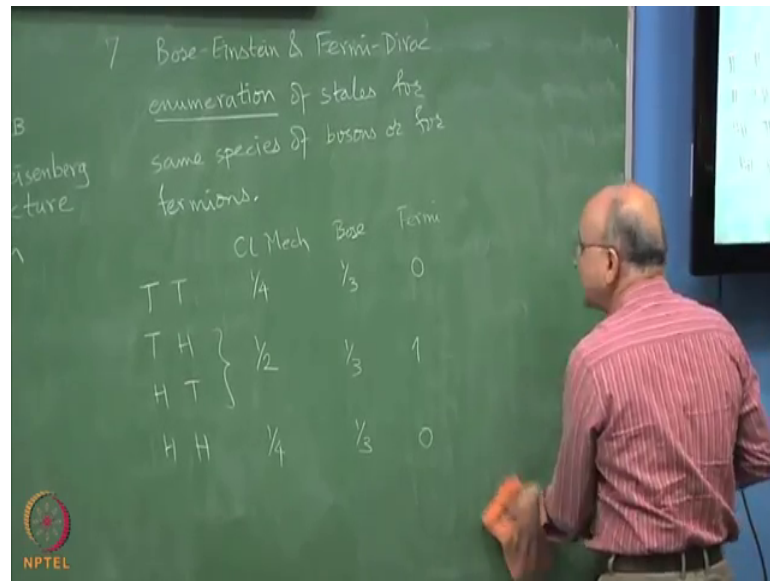 7 Bose-Einstein & Fermi-Dirac
enumeration of states for
same species of bosons or for
fermions.
B
eisenberg
cture
n
Cl Mech Bose Fermi
T T 1/4 1/3 0
T H } 1/2 1/3 1
H T
H H 1/4 1/3 0
NPTEL